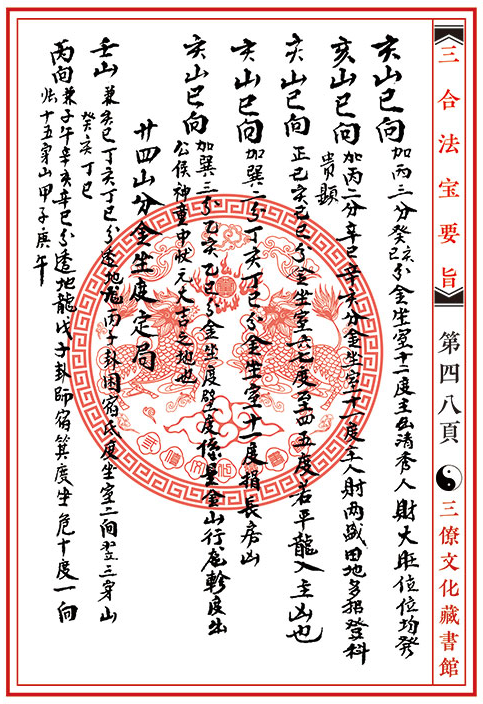 三合法宝要旨
第四八頁
三僚文化藏書館
亥山巳向加丙三分癸亥巳分金坐室十二度主出清秀人財大旺位位均發
亥山巳向加丙二分辛巳辛亥分金坐室十一度主人財兩盛田地多招登科
貴顯
亥山巳向正巳亥己巳分金坐室六七度至四五度若平龍入主凶也
亥山巳向加巽二分丁亥丁巳分金坐室十一度損長房凶
亥山巳向加巽三分乙亥乙巳分金坐度壁度係星金山行龙軫度出
公侯神童中狀元大吉之地也
廿四山分金坐度定局
壬山兼亥巳丁亥丁巳分透地龙丙子卦困宿氏度坐室二向翌三穿山
癸亥丁巳
丙向兼子午辛亥辛巳分透地龍戊子卦師宿箕度坐危十度一向
張十五穿山甲子庚午